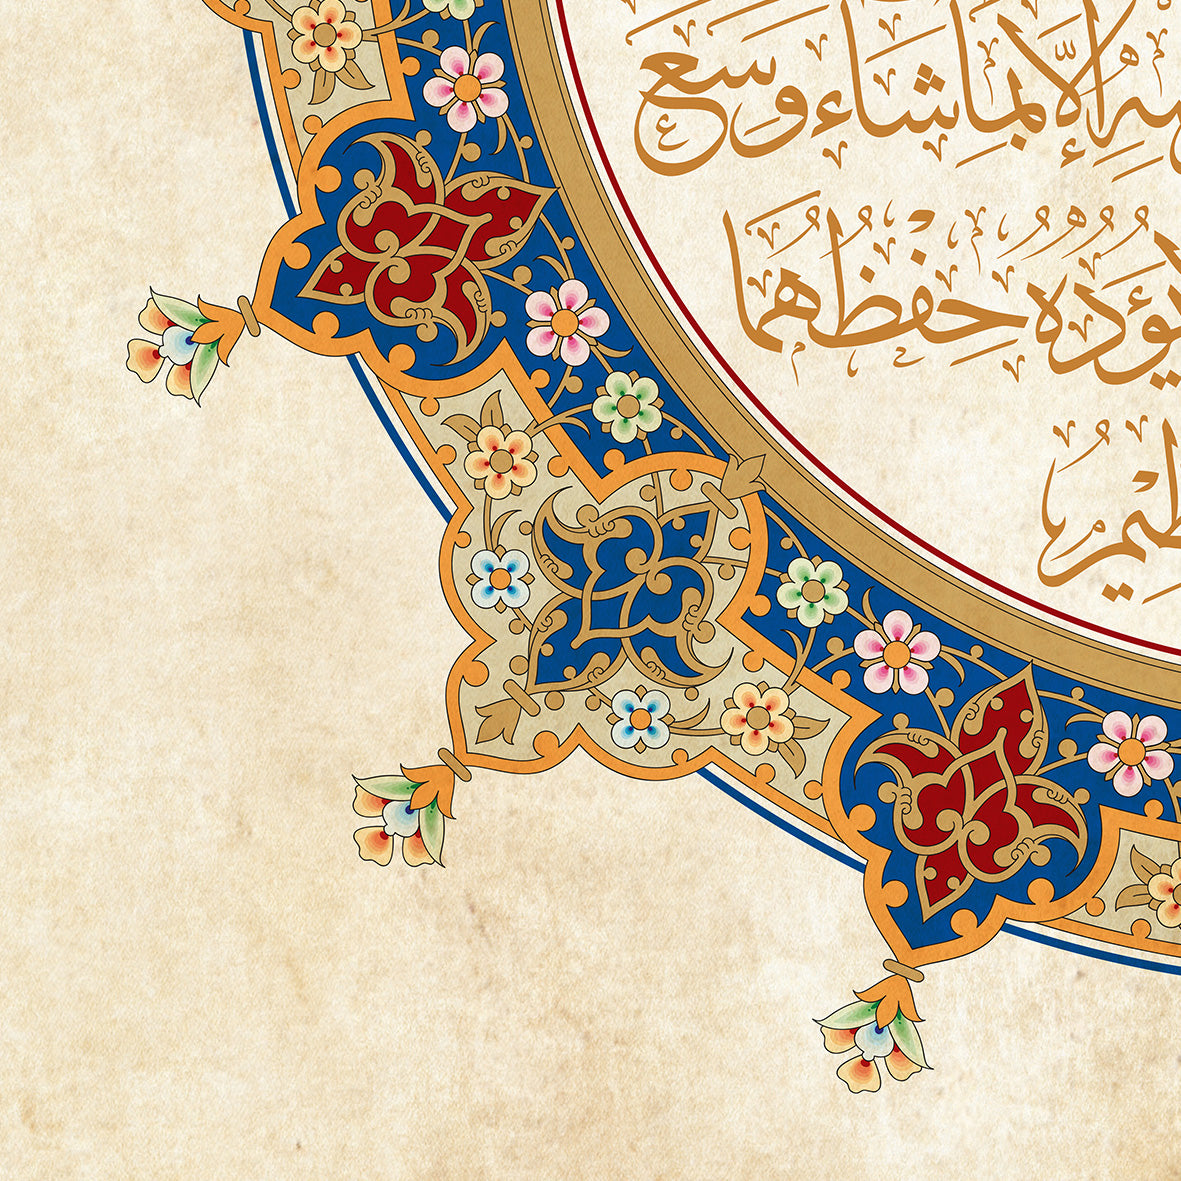 إِلَّا بِمَا شَاءَ وَسِعَ
يَؤُدُهُ حِفْظُهُمَا
ظِيْمُ